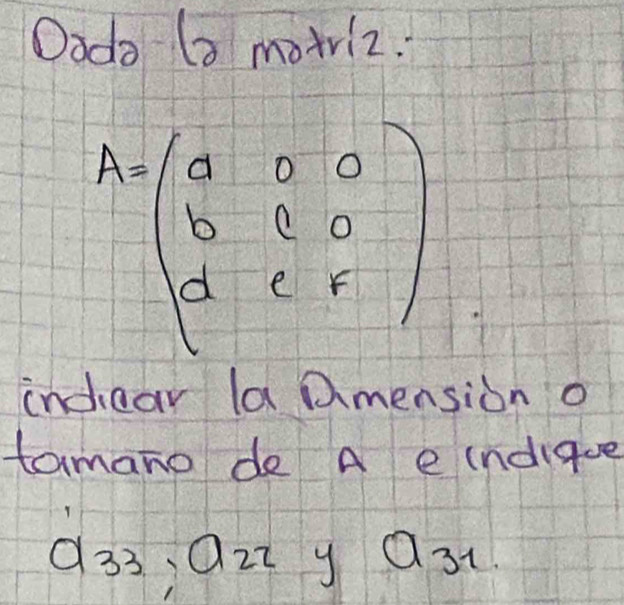 Dada la matríz:
A = ( a 0 0
b c 0
d e f ) .
indicar la Dimensión o
tamaño de A e indique
a33 ; a22 y a31.